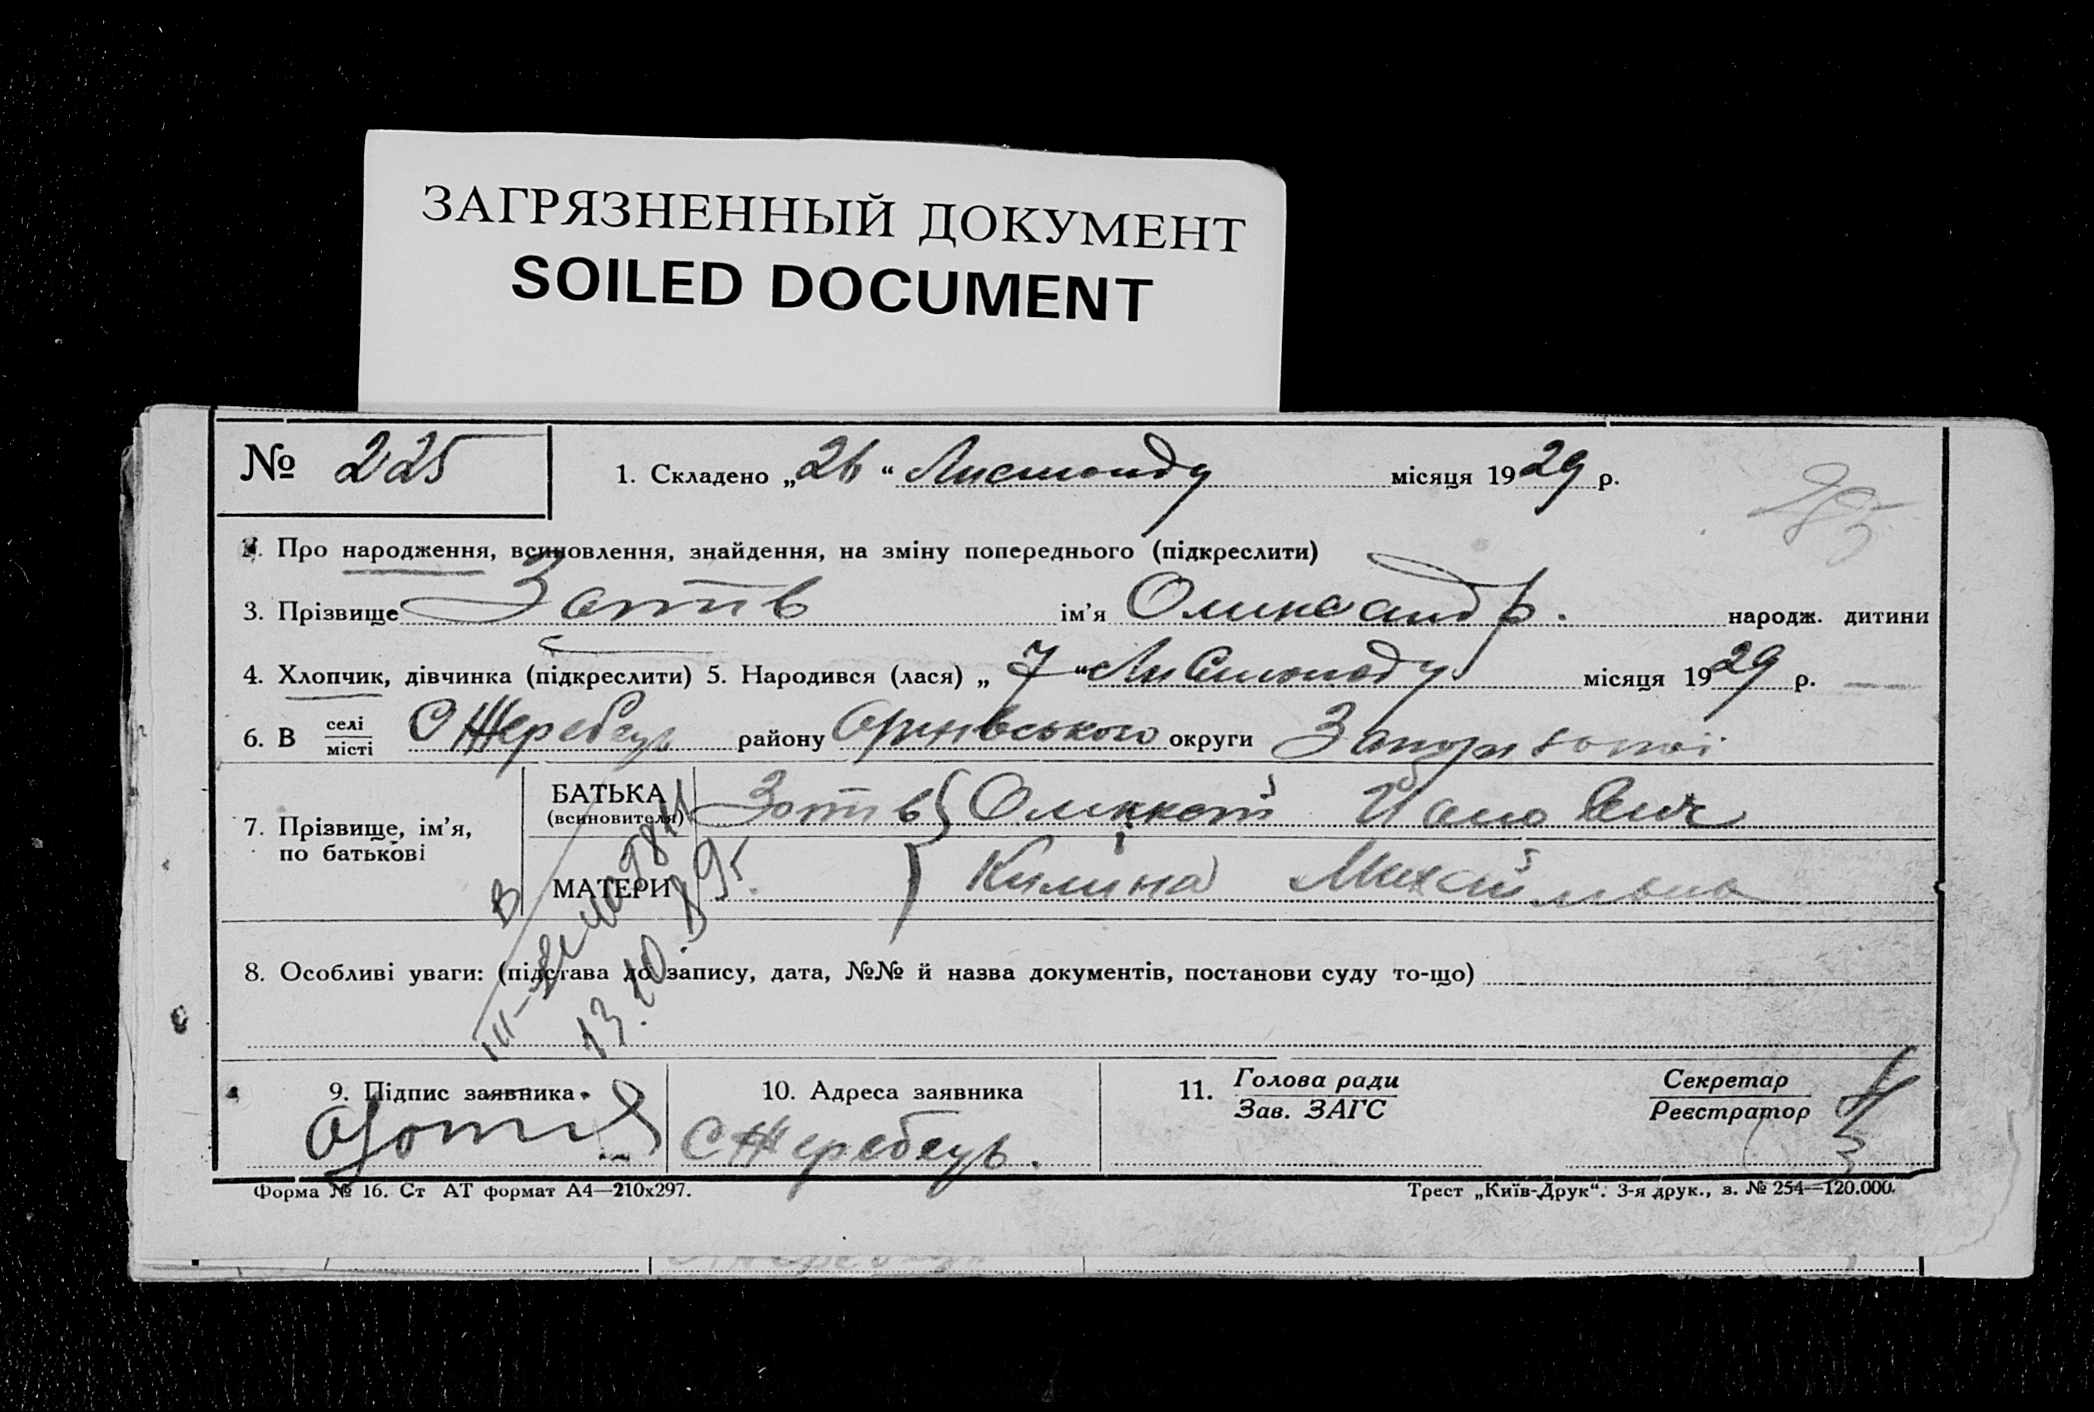 ЗАГРЯЗНЕННЫЙ ДОКУМЕНТ
SOILED DOCUMENT
№ 225
1. Складено „26“ Листопаду місяця 1929 р.
2. Про народження, всиновлення, знайдення, на зміну попереднього (підкреслити)
3. Прізвище Зотів ім’я Олександр. народж. дитини
4. Хлопчик, дівчинка (підкреслити) 5. Народився (лася) „7“ Листопаду місяця 1929 р.
6. В селі місті С Жеребець району Оріхівського округи Запоризької
7. Прізвище, ім’я, по батькові
БАТЬКА (всиновителя) Зотів
МАТЕРИ Килина Михайловна
8. Особливі уваги: (підстава до запису, дата, №№ й назва документів, постанови суду то-що)
9. Підпис заявника
10. Адреса заявника
С Жеребець.
11. Голова ради
Зав. ЗАГС
Секретар
Реєстратор
Форма № 16. Ст АТ формат А4—210х297.
Трест „Київ-Друк“. 3-я друк., з. № 254—120.000.